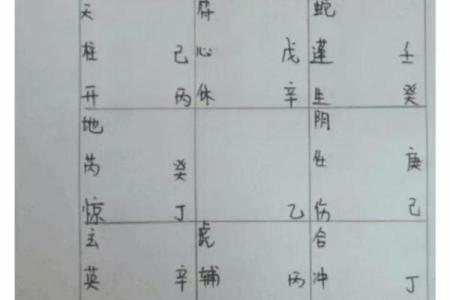 天 符 蛇
柱 己 心 戊 蓬 壬
开 丙 休 辛 生 癸
地 阴
芮 癸 任 庚
惊 丁 乙 伤 己
玄 虎 合
英 辛 辅 丙 冲 丁